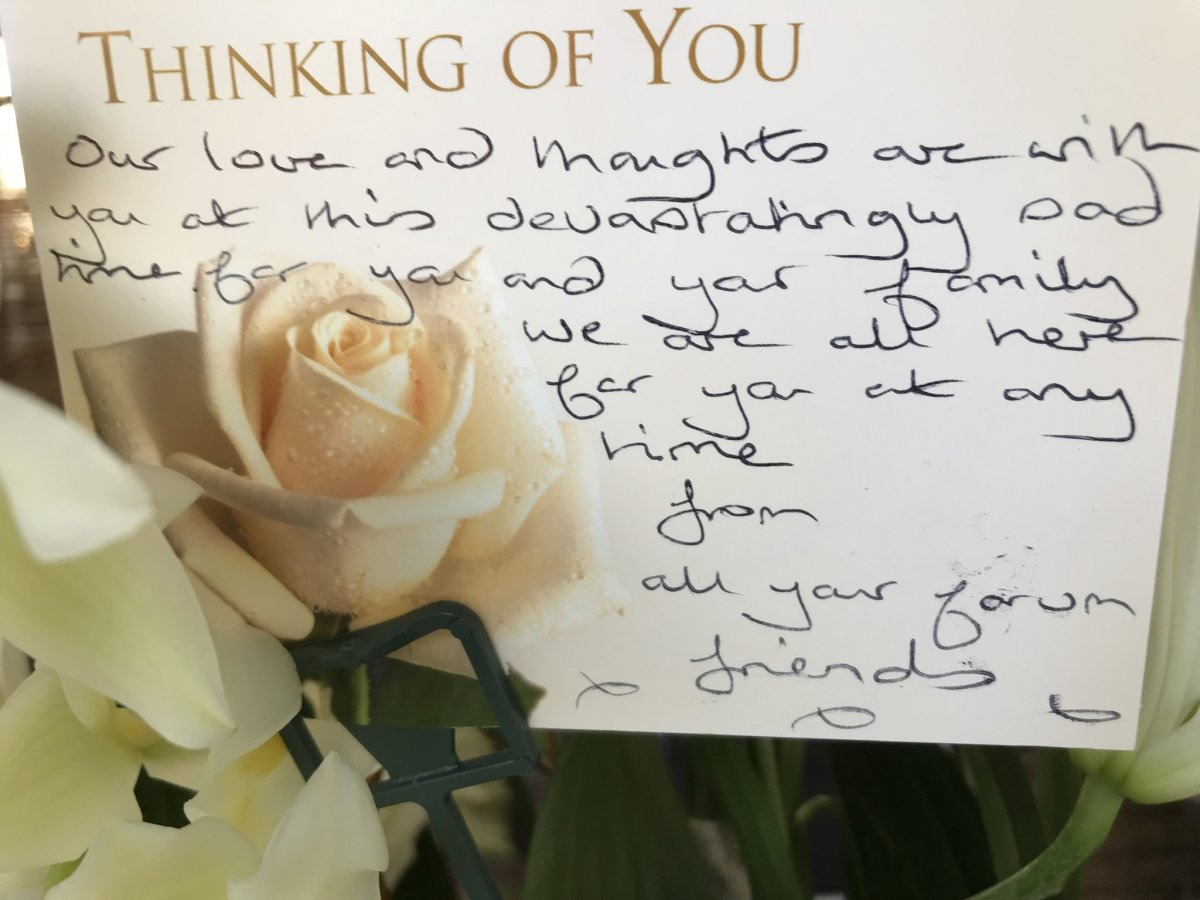 THINKING OF YOU
Our love and thoughts are with
you at this devastatingly sad
time for you and your family
we are all here
for you at any
time
from
all your forum
friends
x x x